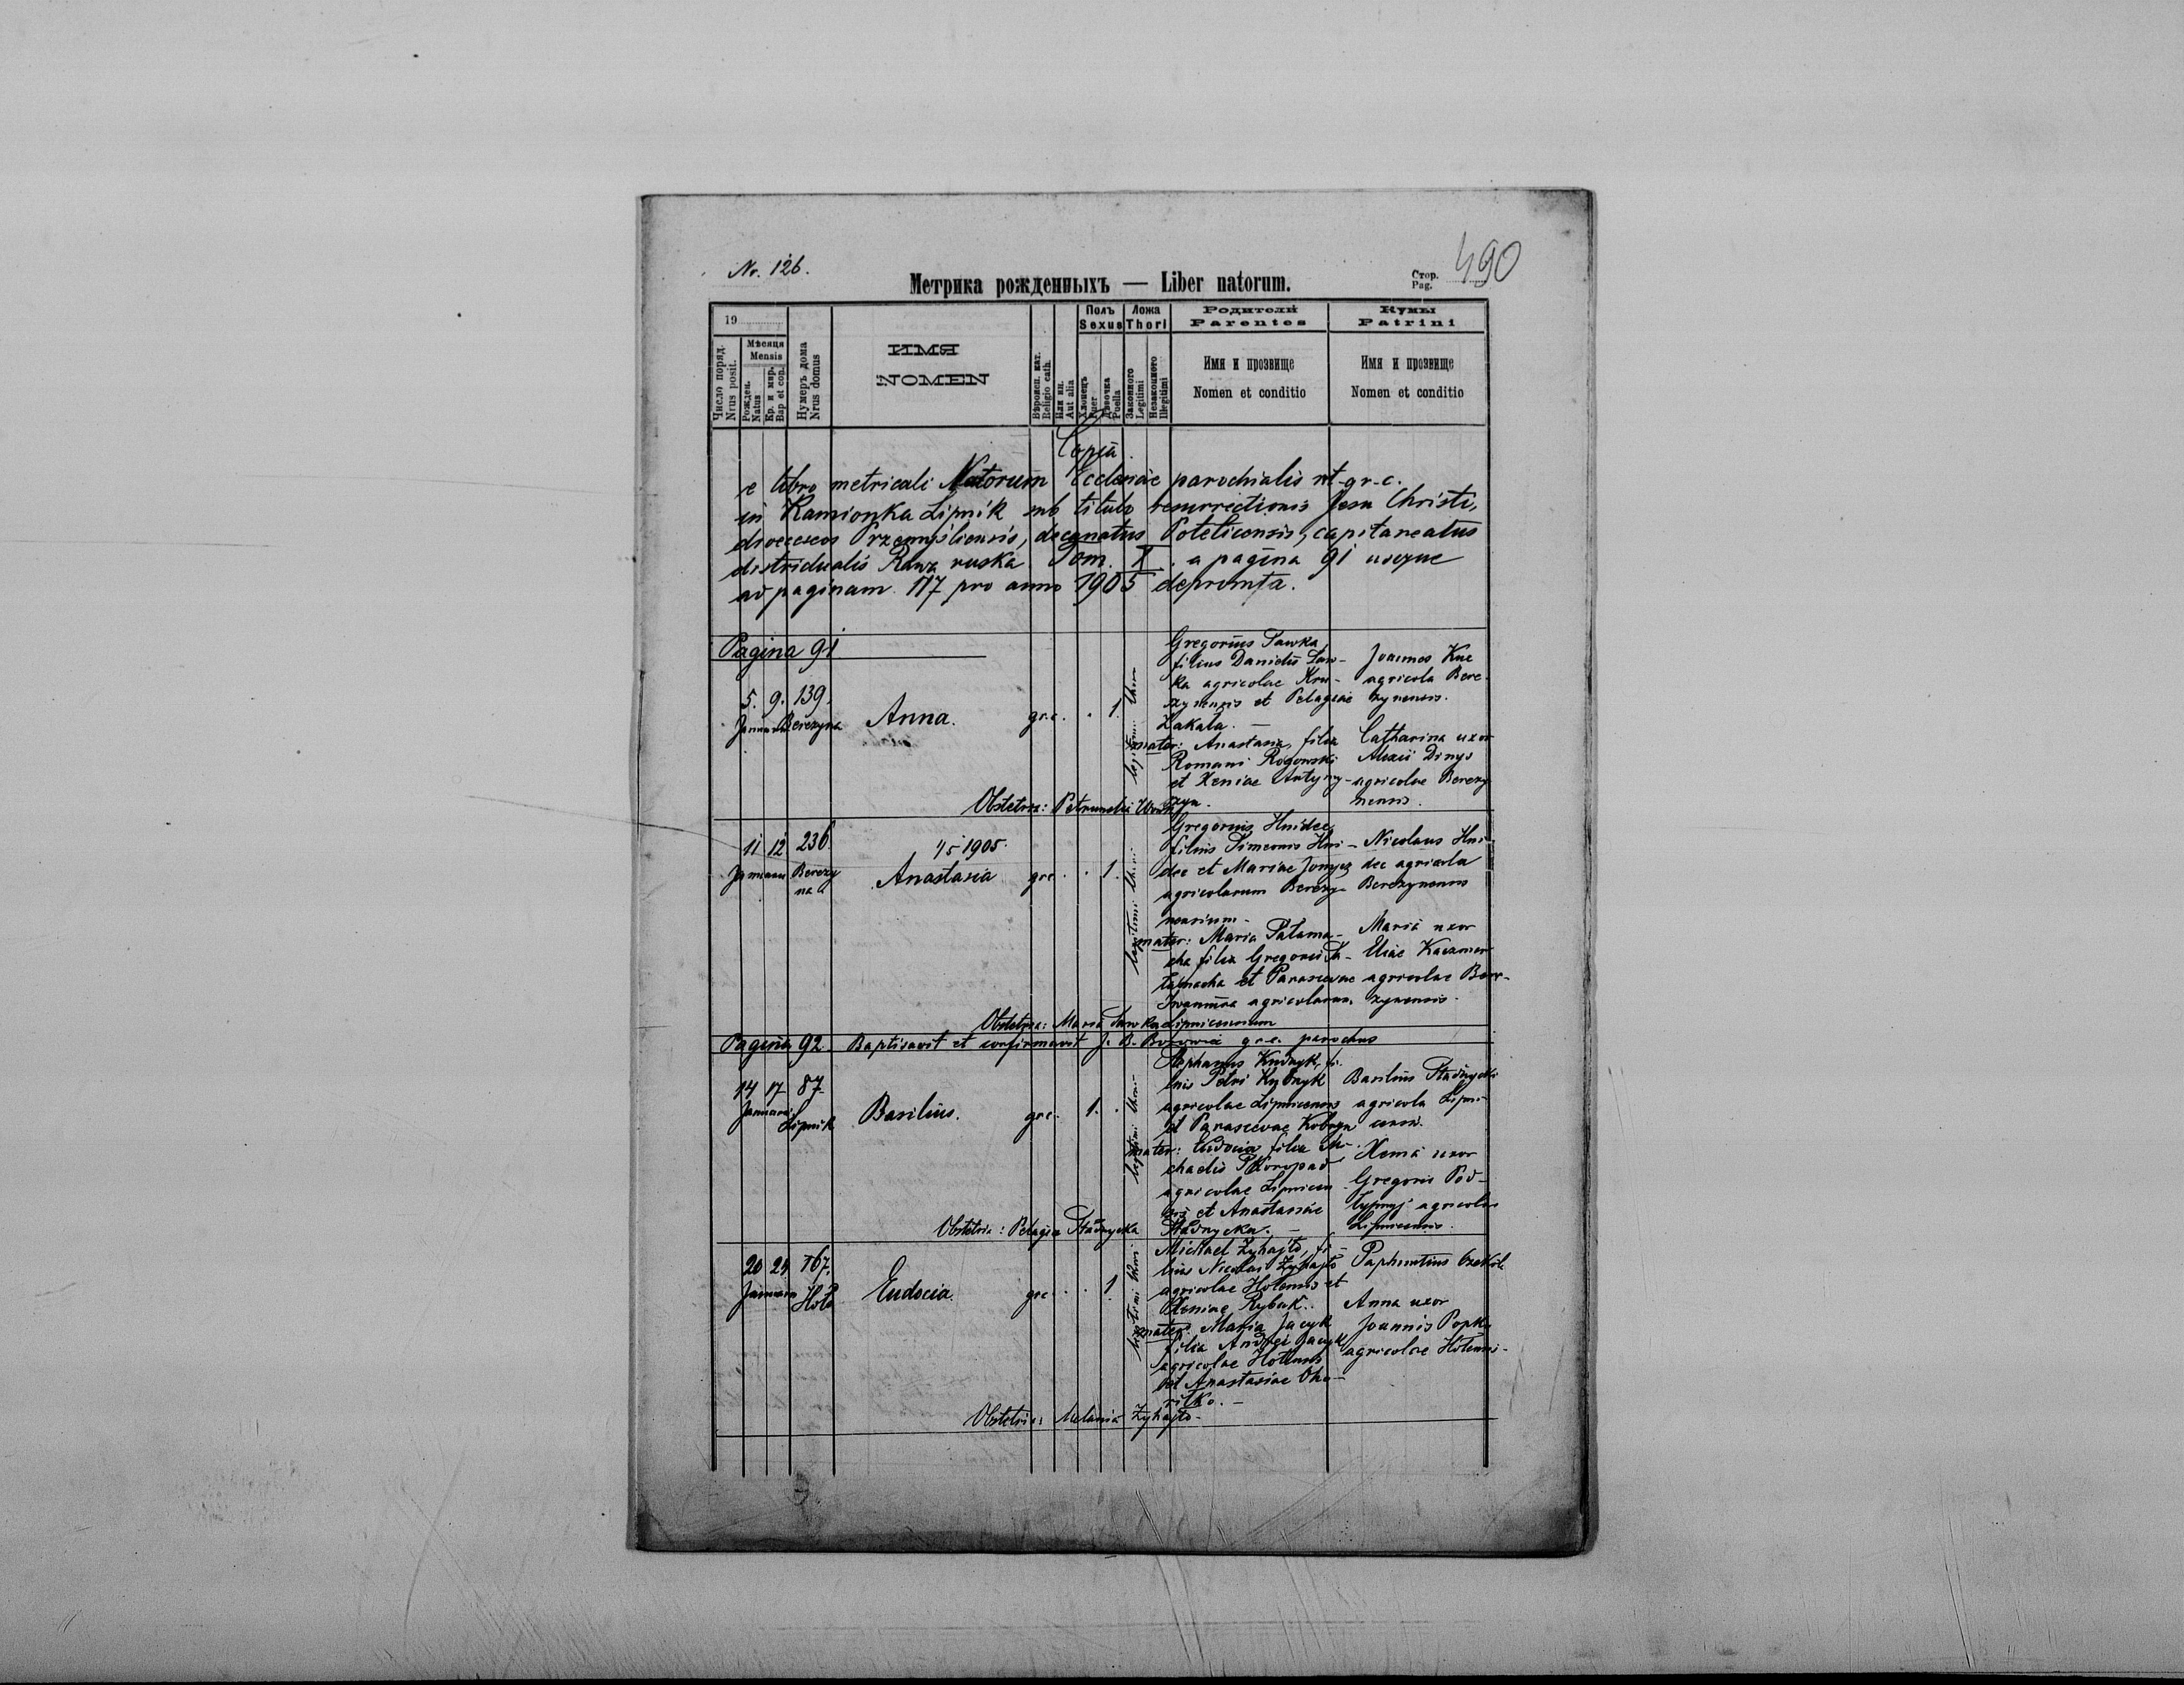 No. 126.
490
Метрика рожденныхъ — Liber natorum.
Стор.
Pag.
19
Число поряд.
Nrus posit.
Мѣсяця
Mensis
Рожден.
Natus
Кр. и мѵр.
Bap et con.
Нумеръ дома
Nrus domus
ИМЯ
NOMEN
Вѣроисп. кат.
Religio cath.
Или ин.
Aut alia
Полъ
Sexus
Хлопецъ
Puer
Дѣвочка
Puella
Ложа
Thori
Законного
Legitimi
Незаконного
Illegitimi
Родители
Parentes
Имя и прозвище
Nomen et conditio
Кумы
Patrini
Имя и прозвище
Nomen et conditio
Copia.
e libro metricali Natorum Ecclesiae parochialis rt-gr-c.
in Kamionka Lipnik sub titulo resurrectionis Jesu Christi,
dioeceseos Przemysliensis, decanatus Potelicensis, capitaneatus
districtualis Rawa ruska Tom. X. a pagina 91 usque
ad paginam 117 pro anno 1905 deprompta.
Pagina 91
5. 9. 139.
Januarii Berezyna
Anna. gr.c. . 1.
Gregorius Sawka
filius Danielis Saw-
ka agricolae
et Pelagiae
Zakala. —
mater: Anastasia filia
Romani Rogowski
et Xeniae
Joannes Kuc
agricola Bere-
zynensis.
Catharina uxor
Alexii Dinys
agricolae Berezy-
nensis.
Obstetrix:
11 12 236.
Januarii Berezy
na
1/5 1905.
Anastasia gr.c. . 1.
Gregorius Hnidec
filius Simeonis Hni-
dec et Mariae
agricolarum Berezy-
nensium -
mater: Maria Patama-
cha filia Gregorii Pa-
tamacha et Parascevae
agricolarum
Lipnicensium
Nicolaus Hni-
dec agricola
Berezynensis
Maria uxor
Eliae
agricolae Bere-
zynensis.
Obstetrix: Maria Sawka
Pagina 92. Baptisavit et confirmavit J. B. gr.c. parochus
14 17 87.
Januarii Lipnik
Basilius. gr.c. 1. .
Stephanus fi-
lius Petri
agricolae Lipnicensis
et Parascevae
mater: Eudocia filia Mi-
chaelis Skoropad
agricolae Lipnicen-
sis et Anastasiae
Stadnycka. —
Basilius Stadnycki
agricola Lipni-
censis.
Xenia uxor
Gregorii Pod-
agricolae
Lipnicensis.
Obstetrix: Pelagia Stadnycka
20 24 167.
Januarii Hoło
Eudocia. gr.c. . 1.
Michael Zyhajło, fi-
lius Nicolai Zyhajło
agricolae Holensis et
Xeniae Rybak.
mater: Maria Jacyk
filia Andreae Jacyk
agricolae Holensis
et Anastasiae
Paphnutius
Anna uxor
Joannis Popko
agricolae Holensis.
Obstetrix: Melania Zyhajło.